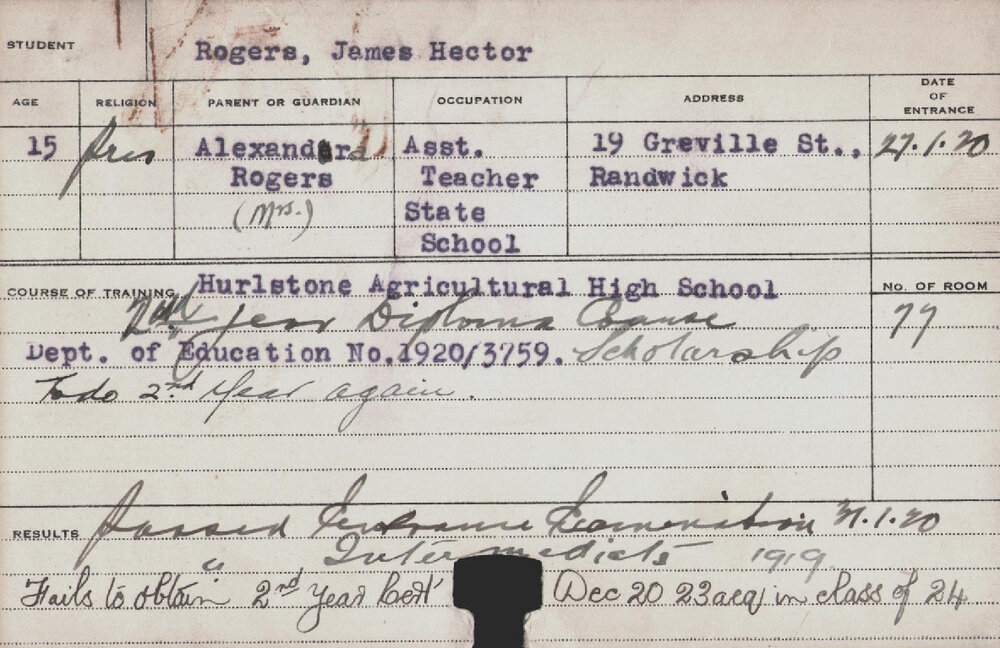 STUDENT Rogers, James Hector
AGE RELIGION PARENT OR GUARDIAN OCCUPATION ADDRESS DATE OF ENTRANCE
15 Pres Alexandra Asst. 19 Greville St., 27.1.20
Rogers Teacher Randwick
(Mrs.) State
School
COURSE OF TRAINING Hurlstone Agricultural High School No. OF ROOM
2nd year Diploma Course 77
Dept. of Education No.1920/3759. Scholarship
To do 2nd Year again.
RESULTS Passed Entrance Examination 31.1.20
" Intermediate 1919
Fails to obtain 2nd Year Cert Dec 20 23 aeq in class of 24